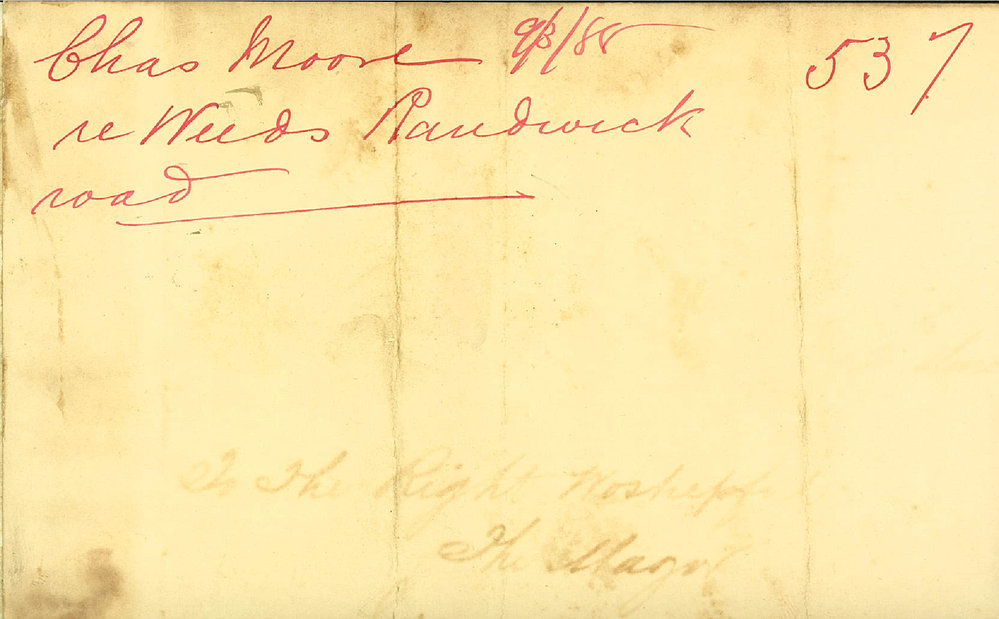 Chas Moore 9/3/88 537
re Weeds Randwick
road
To The Right Woshepful
The Mayor